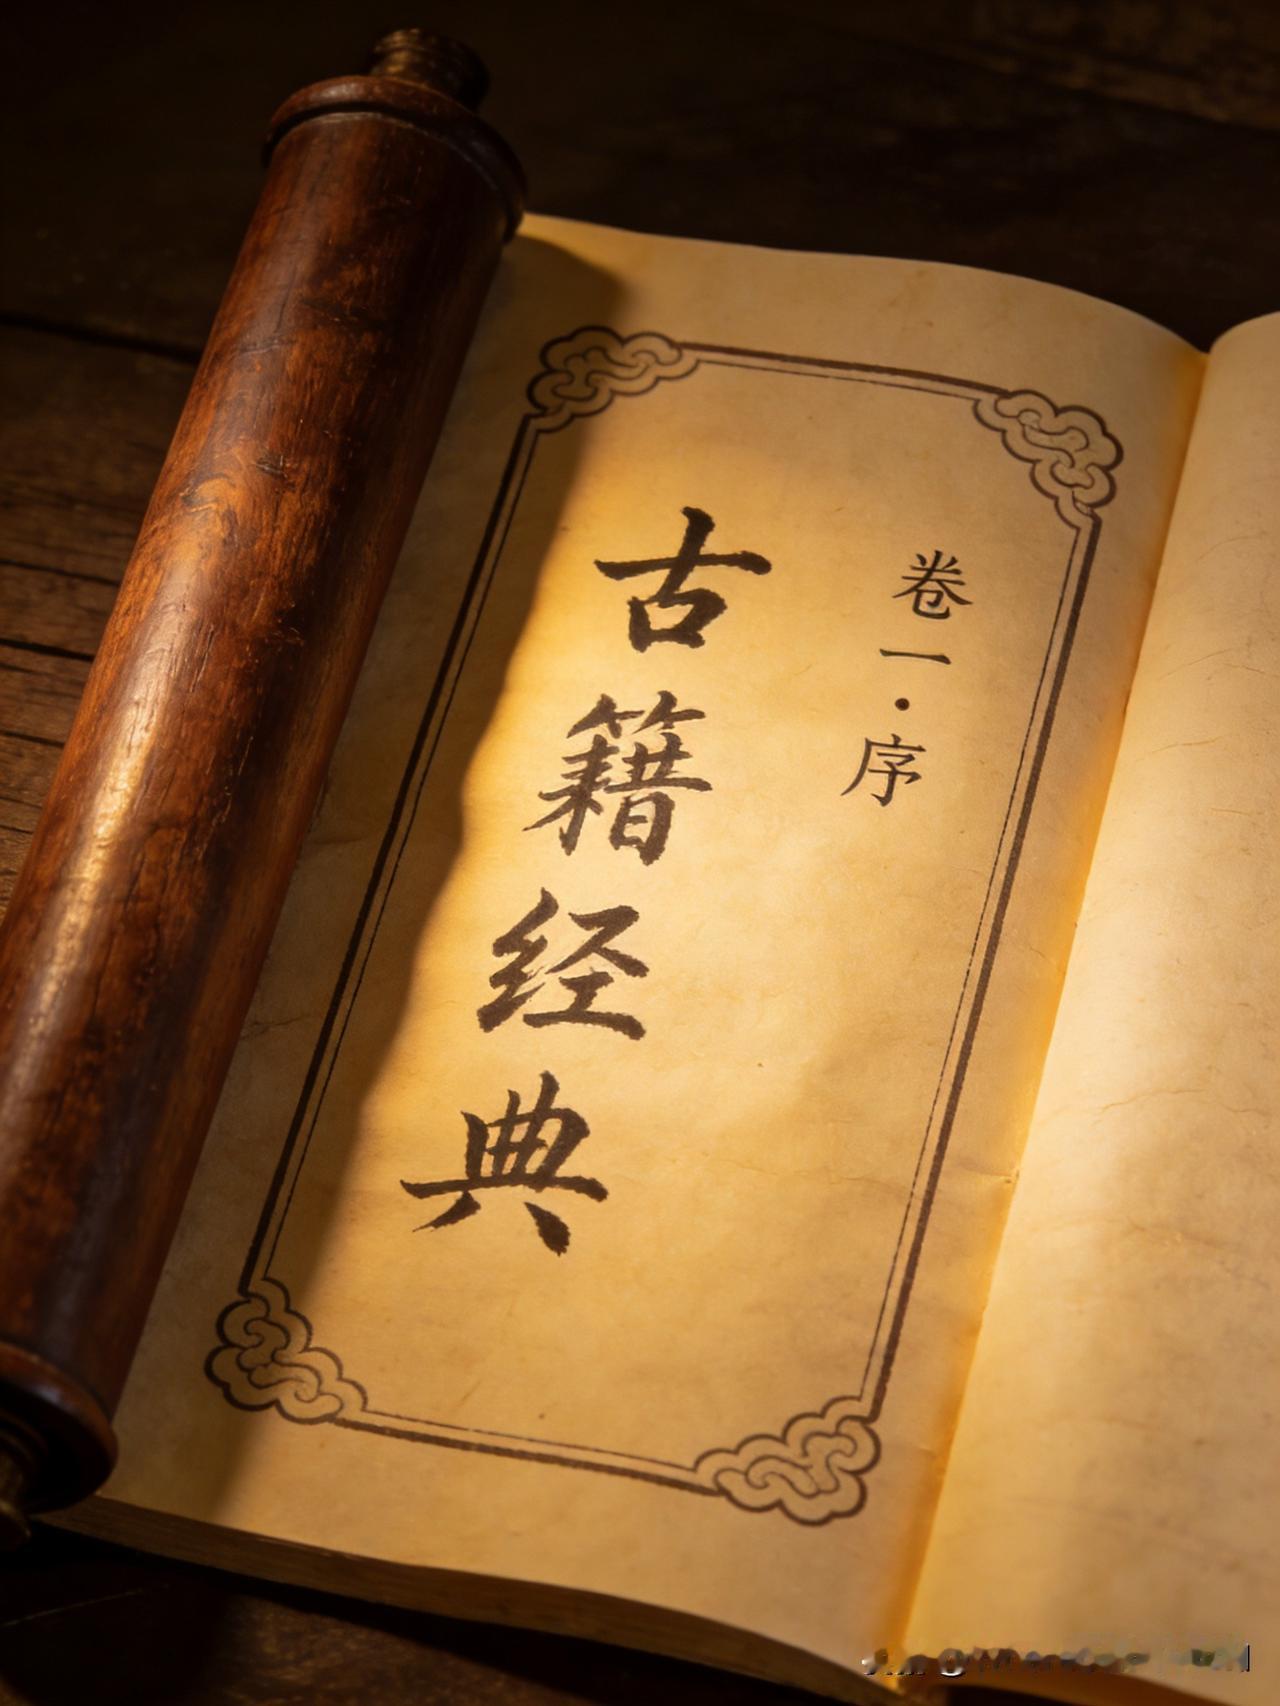 卷一·序
古籍经典